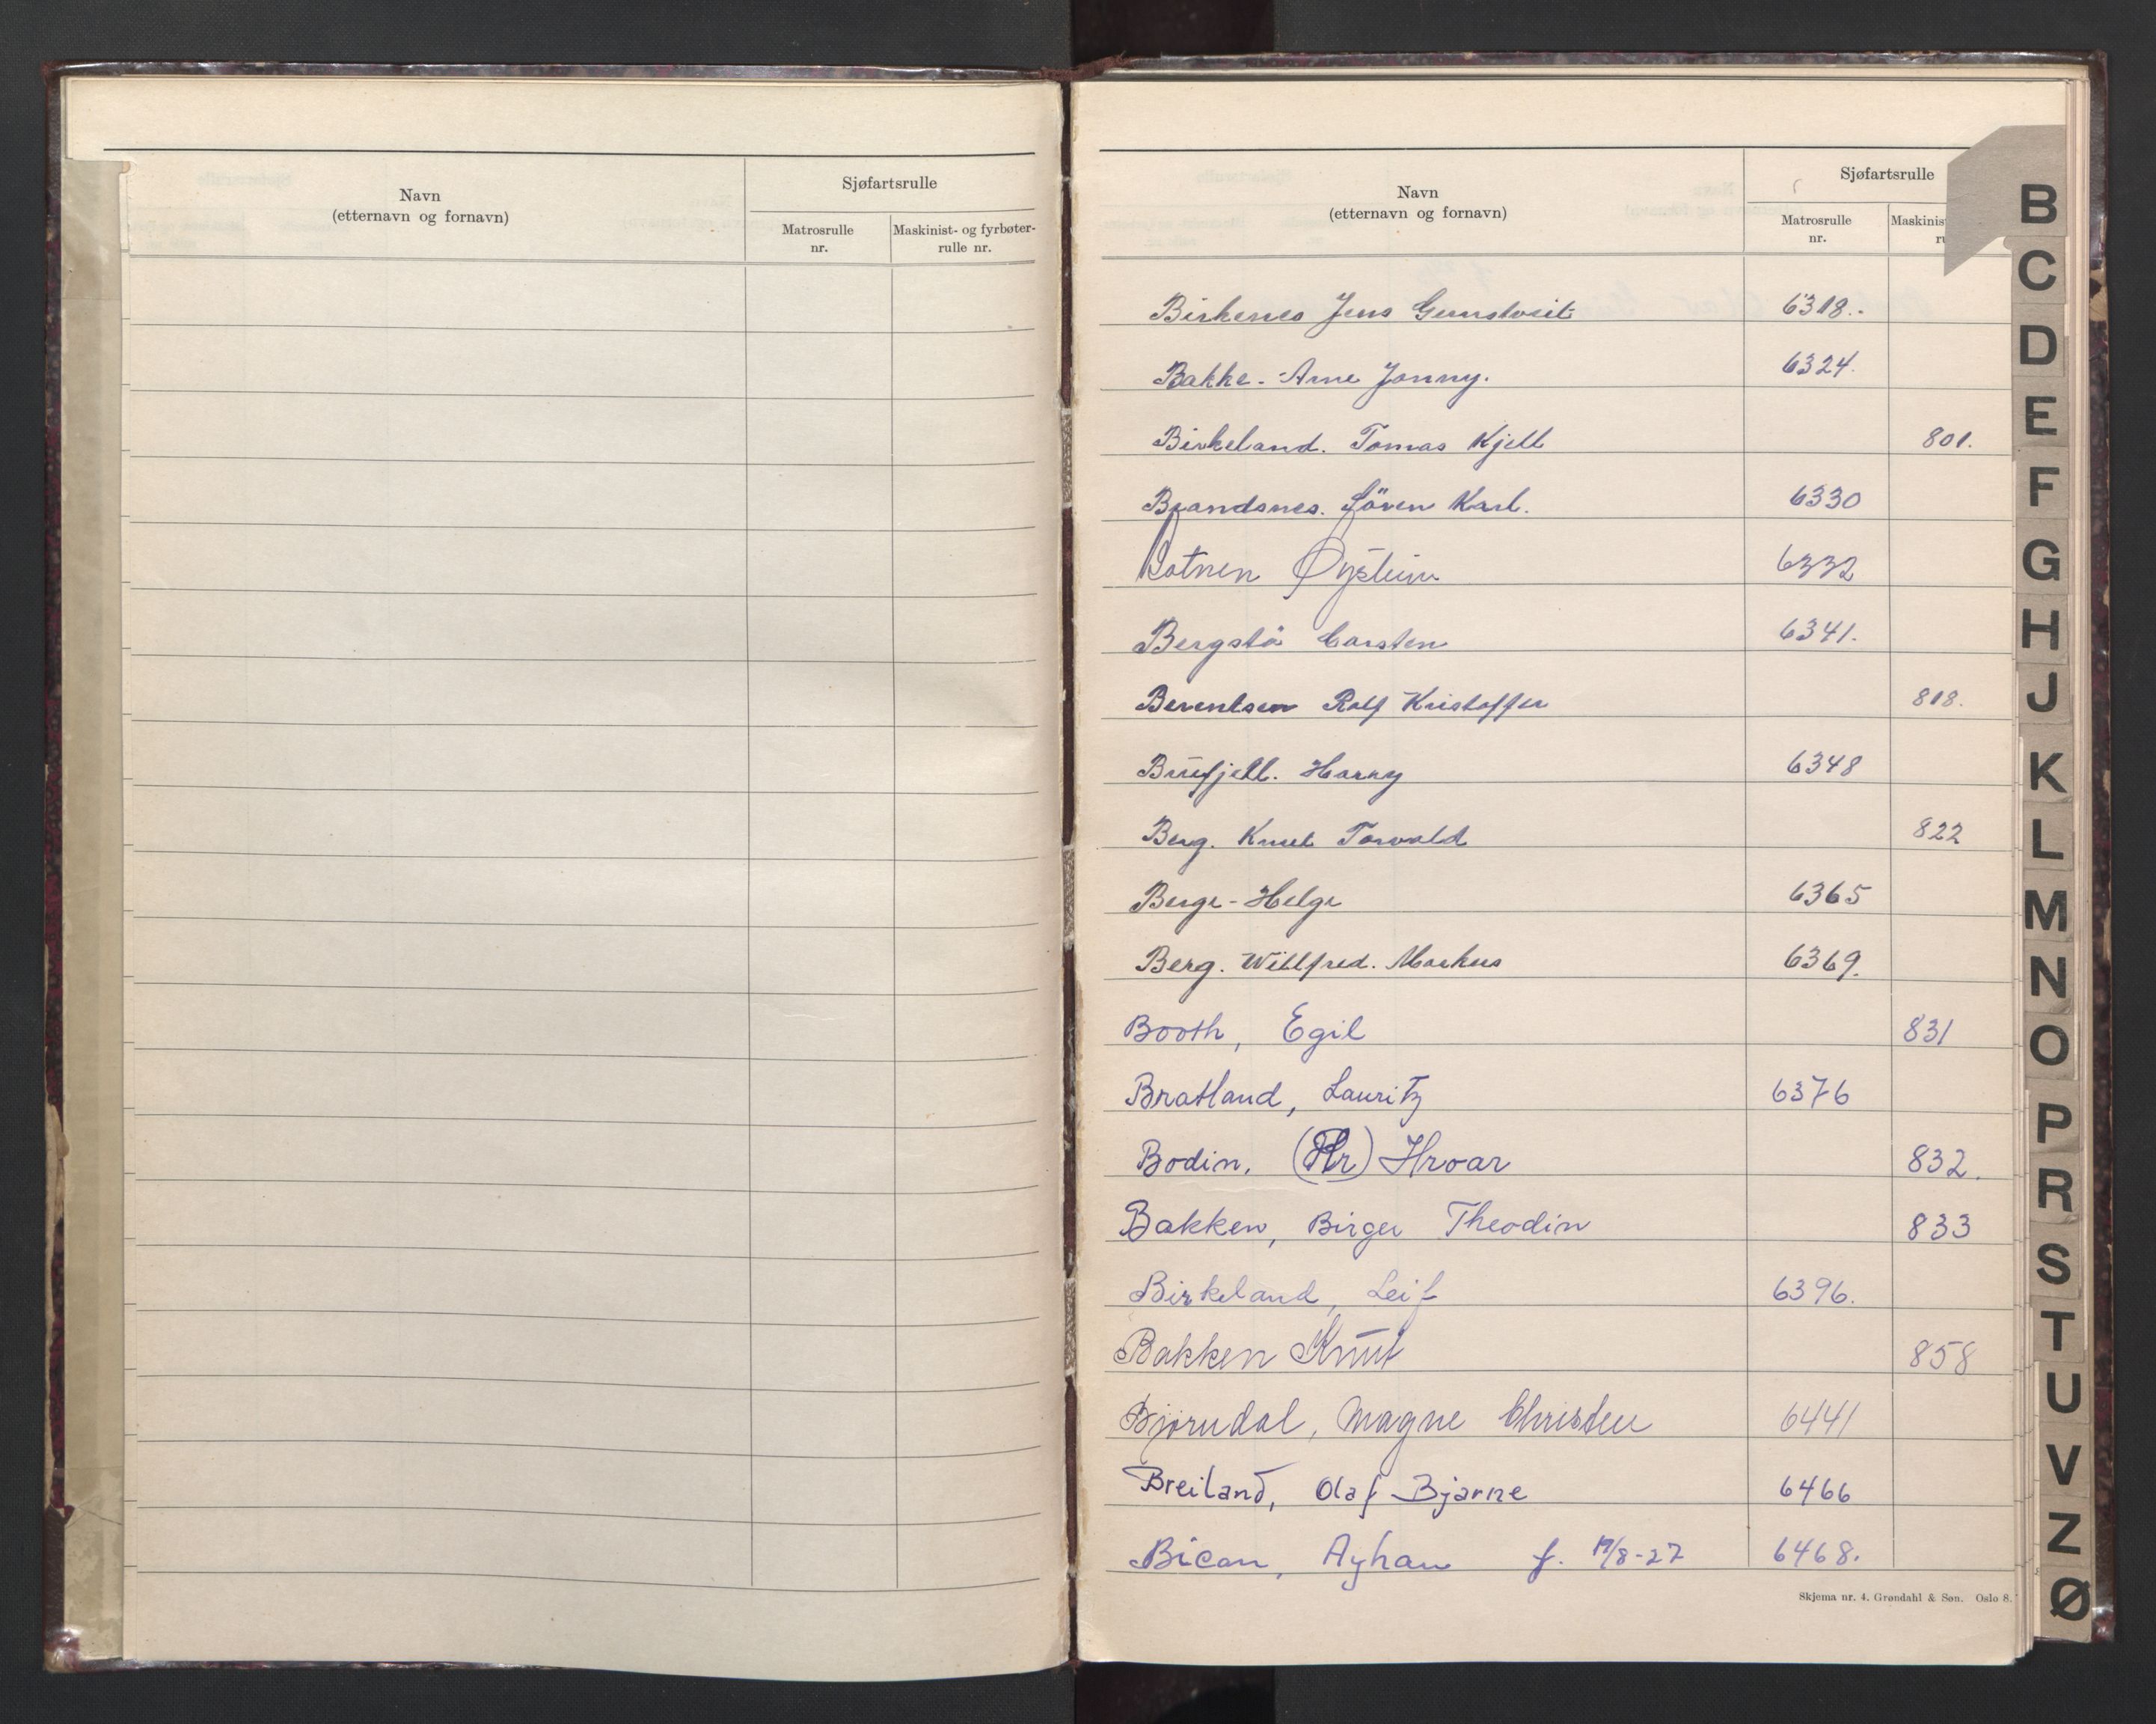 Navn
(etternavn og fornavn)
Sjøfartsrulle
Matrosrulle
nr.
Maskinist- og fyrbøter-
rulle nr.
Navn
(etternavn og fornavn)
Sjøfartsrulle
Matrosrulle
nr.
Maskinist
Birkenes Jens 6318.
Bakke. Arne Jonny. 6324.
Birkeland. Tomas Kjell 801.
Brandsnes. Søren Karl. 6330
Botnen Øystein 6332
Bergstø Carsten 6341.
Berentsen Rolf Kristoffer 818.
Brufjell. Harry 6348
Berg. Knut Torvald 822
Berge - Helge 6365
Berg. Willfred. Markus 6369.
Booth, Egil 831
Bratland, Lauritz 6376
Bodin, (Hr) Hroar 832.
Bakken, Birger Theodin 833
Birkeland, Leif 6396.
Bakken Knut 858
Bjørndal, Magne Christen 6441
Breiland, Olaf Bjarne 6466
Bican, Ayhan f. /8-27 6468.
Skjema nr. 4. Grøndahl & Søn. Oslo 8.
B
C
D
E
F
G
H
J
K
L
M
N
O
P
R
S
T
U
V
Z
Ø